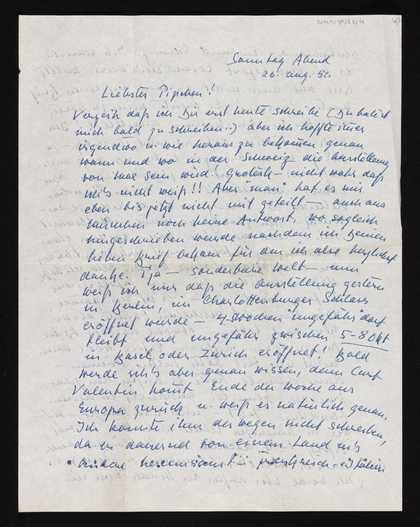 Sonntag Abend
26. Aug. 51.
Liebster Pipchen!
Verzeih daß ich Dir erst heute schreibe (Du batest
mich bald zu schreiben..) aber ich hoffte immer
irgendwo u. wie heraus zu bekommen, genau
wann und wo in der Schweiz die Ausstellung
von mae sein wird. Grotesk – nicht wahr daß
ich's nicht weiß!! Aber "man" hat es mir
eben bis jetzt nicht mit geteilt – auch aus
München noch keine Antwort, wo sogleich
hingeschrieben wurde nachdem ich Deinen
lieben Brief bekam für den ich also herzlichst
danke. Tja – sonderbare Welt – nun
weiß ich nur daß die Ausstellung gestern
in Berlin, im Charlottenburger Schloss
eröffnet wurde – 4 Wochen "ungefähr" dort
bleibt und ungefähr zwischen 5–8 Okt
in Basel oder Zürich eröffnet! Bald
werde ich's aber genau wissen, denn Curt
Valentin kommt Ende der Woche aus
Europa zurück u. weiß es natürlich genau.
Ich konnte ihm deswegen nicht schreiben,
da er dauernd von einem Land ins
andere – Frankreich – Italien